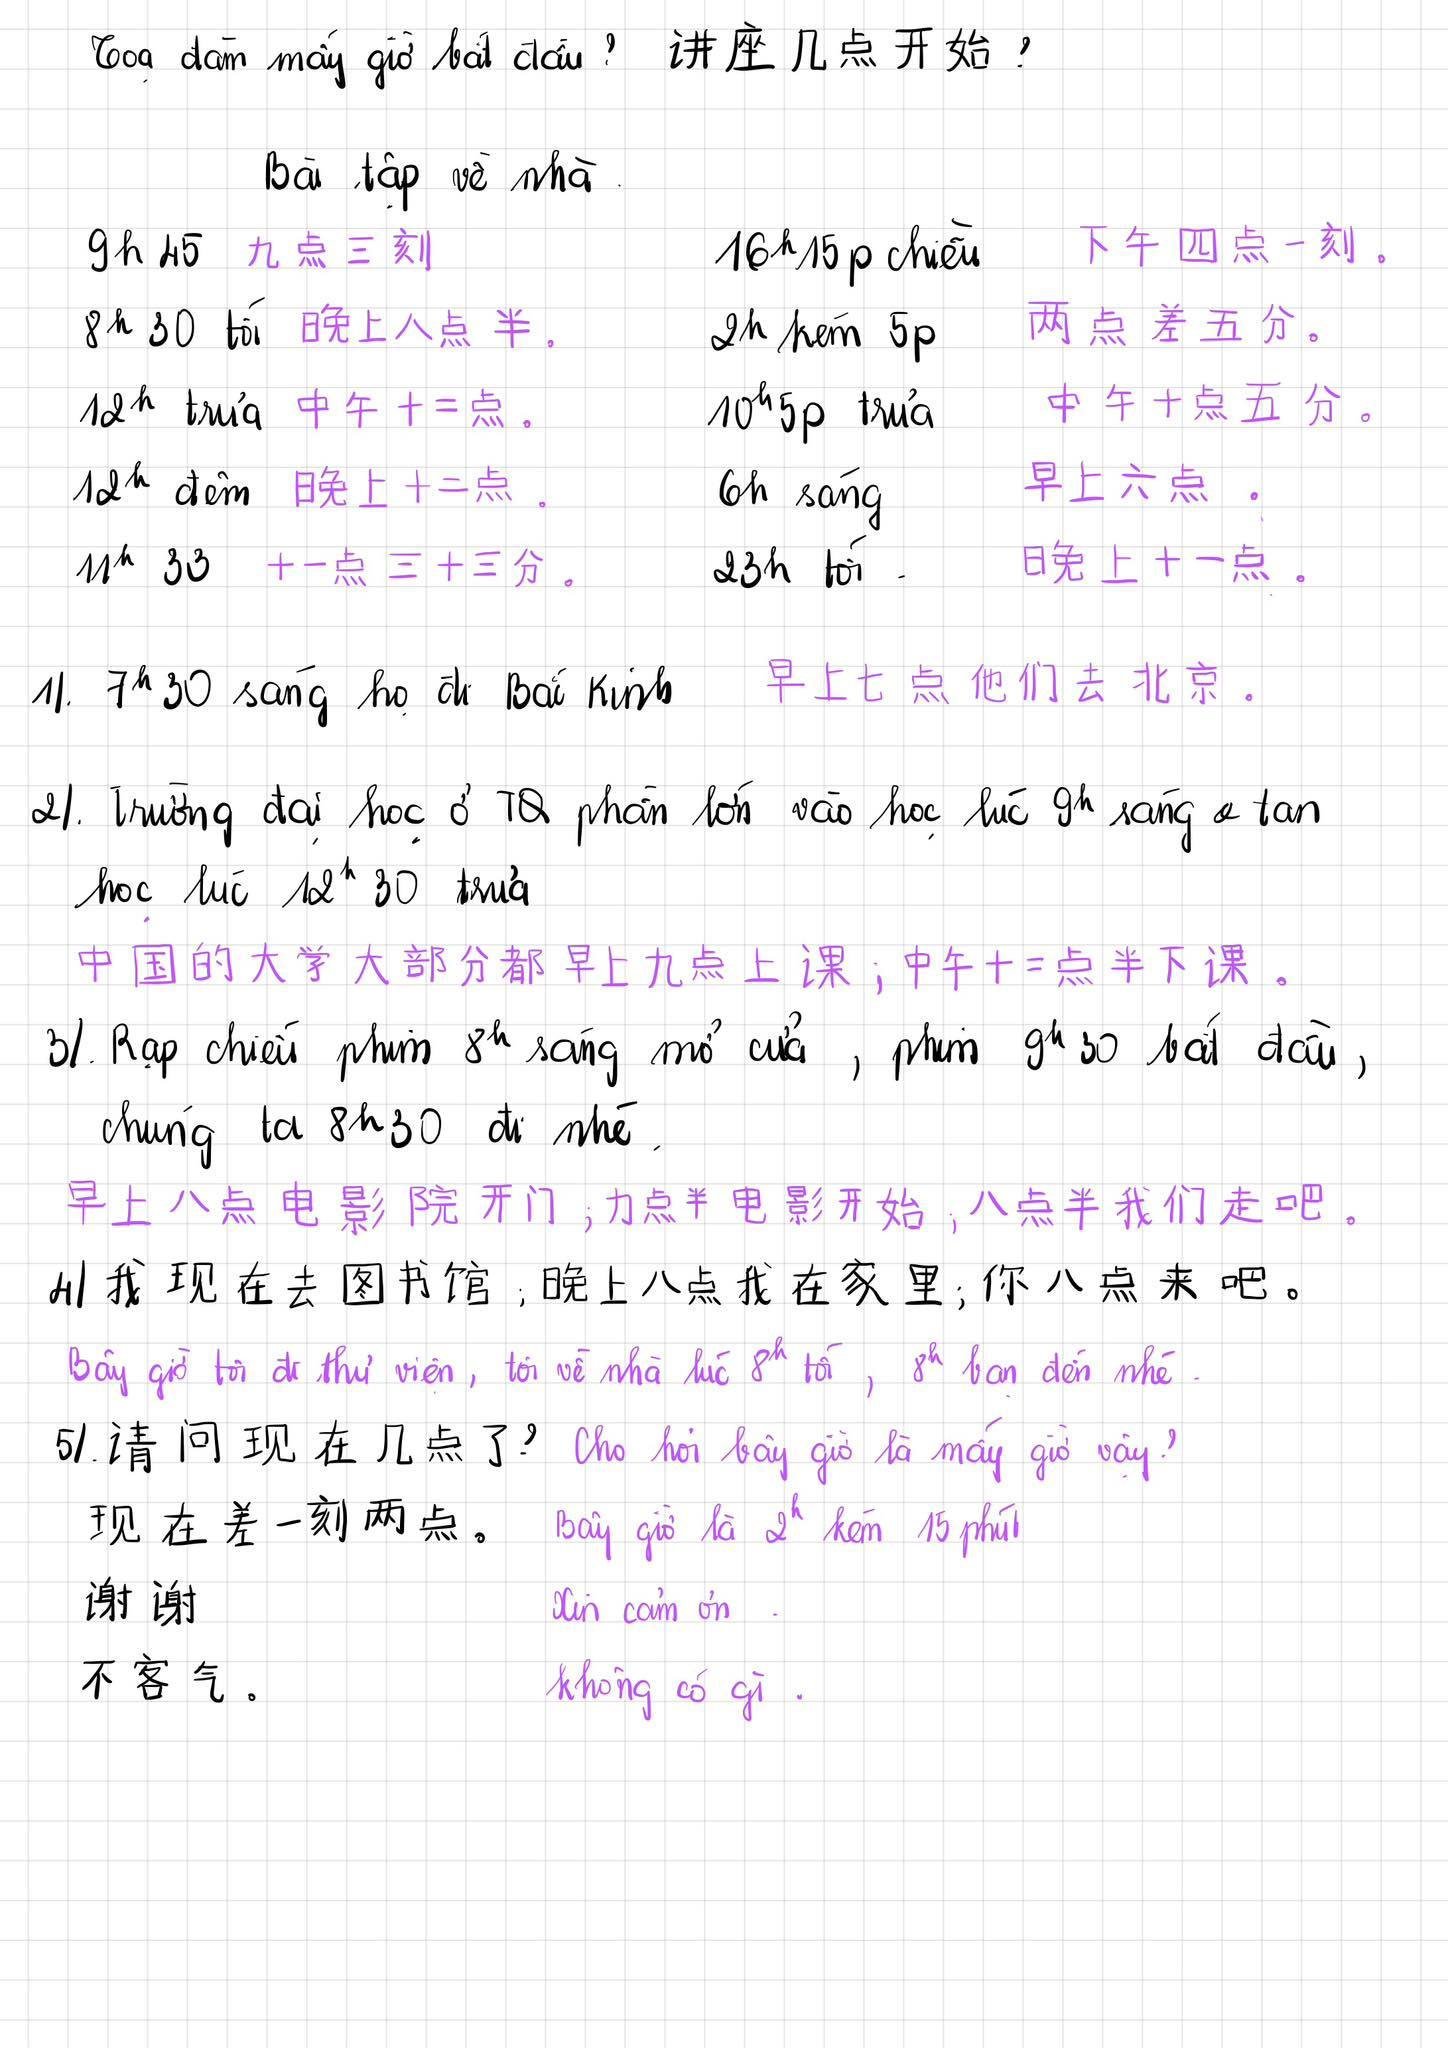 Toạ đàm mấy giờ bắt đầu? 讲座几点开始?
Bài tập về nhà.
9h 45 九点三刻 16h15p chiều 下午四点一刻。
8h 30 tối 晚上八点半. 2h kém 5p 两点差五分。
12h trưa 中午十二点。 10h5p trưa 中午十点五分。
12h đêm 晚上十二点. 6h sáng 早上六点.
11h 33 十一点三十三分. 23h tối. 晚上十一点.
1/. 7h30 sáng họ đi Bắc Kinh 早上七点他们去北京.
2/. Trường đại học ở TQ phần lớn vào học lúc 9h sáng & tan
học lúc 12h 30 trưa
中国的大学大部分都早上九点上课;中午十二点半下课。
3/. Rạp chiếu phim 8h sáng mở cửa, phim 9h 30 bắt đầu,
chúng ta 8h30 đi nhé.
早上八点电影院开门;力点半电影开始;八点半我们走吧.
4/ 我现在去图书馆;晚上八点我在家里;你八点来吧。
Bây giờ tôi đi thư viện, tôi về nhà lúc 8h tối, 8h bạn đến nhé.
5/. 请问现在几点了? Cho hỏi bây giờ là mấy giờ vậy?
现在差一刻两点。 Bây giờ là 2h kém 15 phút
谢谢 Xin cảm ơn.
不客气。 không có gì.